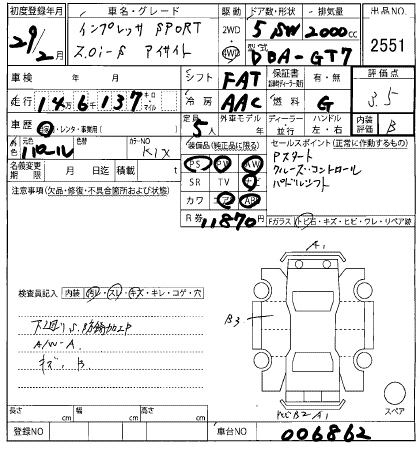 初度登録年月 車名・グレード 駆動 ドア数・形状 排気量 出品NO.
29年2月 インプレッサ SPORT 2WD 4WD 5 SW 2000cc 2551
2.0i-S アイサイト 型式 DBA-GT7
車検 年 月 シフト FAT 保証書 有 無 評価点
走行 14万6千137 キロ マイル 冷房 AAC 燃料 G 3.5
車歴 自家・レンタ・事業用( ) 定員 5人 外車モデル 年 ディーラー 並行 ハンドル 左・右 内装評価 B
色 元色 色替 カラーNO 装備品(純正品に限る) セールスポイント(正常に作動するもの)
パール K1X PS PW AW Pスタート
名義変更期限 月 日迄 積載 t SR TV ナビ クルーズ・コントロール
注意事項(欠品・修復・不具合箇所および状態) カワ エア AB パドルシフト
R券 11870円 Fガラス トビ石・キズ・ヒビ・ワレ・リペア跡
A1
検査員記入 内装 汚レ・スレ・キズ・キレ・コゲ・穴
B3
下回りS.防錆加工P
A/W-A
キズ、B
スペア
B2 A1
長さ cm 幅 cm 高さ cm
登録NO 車台NO 006862